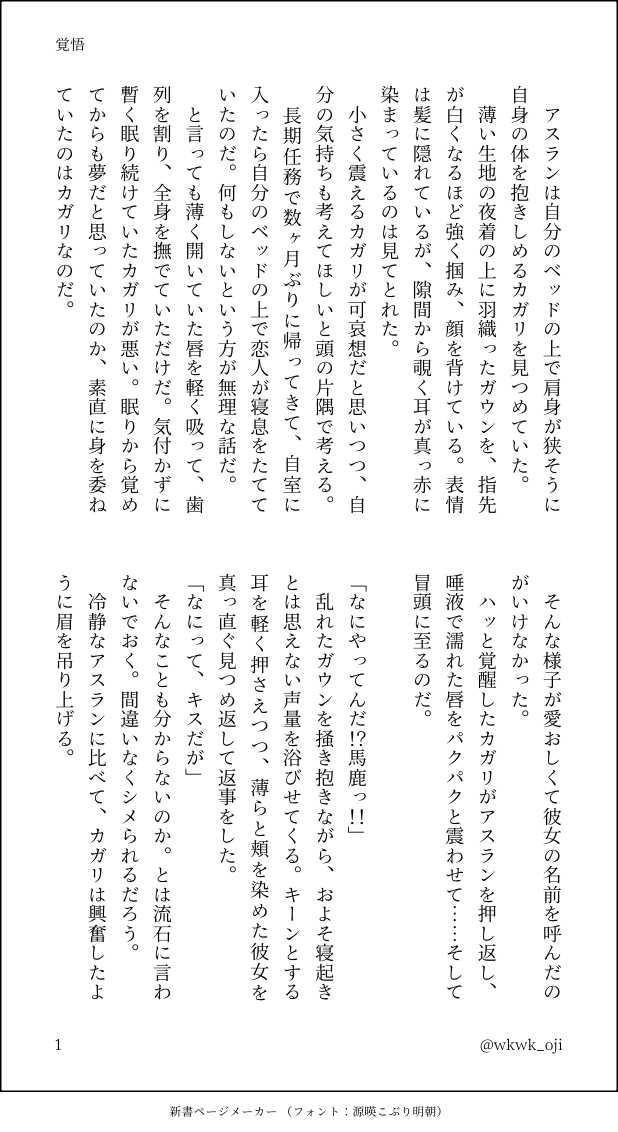 覚悟
　アスランは自分のベッドの上で肩身が狭そうに
自身の体を抱きしめるカガリを見つめていた。
　薄い生地の夜着の上に羽織ったガウンを、指先
が白くなるほど強く掴み、顔を背けている。表情
は髪に隠れているが、隙間から覗く耳が真っ赤に
染まっているのは見てとれた。
　小さく震えるカガリが可哀想だと思いつつ、自
分の気持ちも考えてほしいと頭の片隅で考える。
　長期任務で数ヶ月ぶりに帰ってきて、自室に
入ったら自分のベッドの上で恋人が寝息をたてて
いたのだ。何もしないという方が無理な話だ。
　と言っても薄く開いていた唇を軽く吸って、歯
列を割り、全身を撫でていただけだ。気付かずに
暫く眠り続けていたカガリが悪い。眠りから覚め
てからも夢だと思っていたのか、素直に身を委ね
ていたのはカガリなのだ。
　そんな様子が愛おしくて彼女の名前を呼んだの
がいけなかった。
　ハッと覚醒したカガリがアスランを押し返し、
唾液で濡れた唇をパクパクと震わせて……そして
冒頭に至るのだ。
「なにやってんだ!?馬鹿っ!!」
　乱れたガウンを掻き抱きながら、およそ寝起き
とは思えない声量を浴びせてくる。キーンとする
耳を軽く押さえつつ、薄らと頬を染めた彼女を
真っ直ぐ見つめ返して返事をした。
「なにって、キスだが」
　そんなことも分からないのか。とは流石に言わ
ないでおく。間違いなくシメられるだろう。
　冷静なアスランに比べて、カガリは興奮したよ
うに眉を吊り上げる。
1
@wkwk_oji
新書ページメーカー（フォント：源暎こぶり明朝）